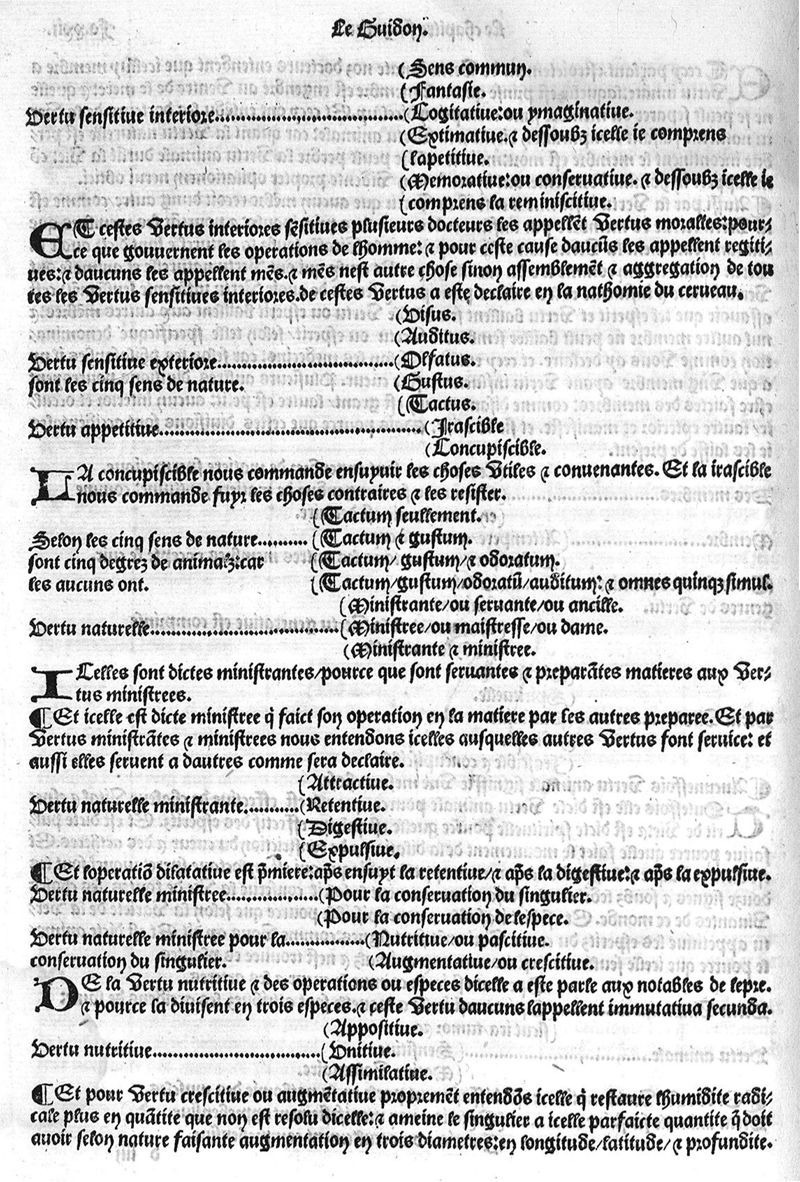 Le Guidon.
(Sens commun.
(Fantasie.
Vertu sensitiue interiore.................................(Cogitatiue:ou ymaginatiue.
(Extimatiue.⁊ dessoubz icelle ie comprens
(lapetitiue.
(Memoratiue:ou conseruatiue. ⁊ dessoubz icelle ie
(comprens la reminiscitiue.
ET cestes Vertus interiores sẽsitiues plusieurs docteurs les appellẽt Vertus moralles:pour-
ce que gouuernent les operations de lhomme:⁊ pour ceste cause daucũs les appellent regiti-
ues:⁊ daucuns les appellent mẽs.⁊ mẽs nest autre chose sinon assemblemẽt ⁊ aggregation de tou
tes les Vertus sensitiues interiores.de cestes Vertus a este declaire en la nathomie du cerueau.
(Visus.
(Auditus.
Vertu sensitiue exteriore...............................(Olfatus.
sont les cinq sens de nature. (Gustus.
(Tactus.
Vertu appetitiue..............................................(Irascible
(Concupiscible.
LA concupiscible nous commande ensuyuir les choses Vtiles ⁊ conuenantes. Et la irascible
nous commande fuyr les choses contraires ⁊ les resister.
(Tactum seullement.
Selon les cinq sens de nature......... (Tactum ⁊ gustum.
sont cinq degrez de animalz:car (Tactum/ gustum/ ⁊ odoratum.
les aucuns ont. (Tactum/gustum/odoratũ/auditum: ⁊ omnes quinqꝫ simul.
(Ministrante/ou seruante/ou ancille.
Vertu naturelle.................................(Ministree/ou maistresse/ou dame.
(Ministrante ⁊ ministree.
ICelles sont dictes ministrantes/pource que sont seruantes ⁊ preparãtes matieres aux Ver-
tus ministrees.
¶Et icelle est dicte ministree q̃ faict son operation en la matiere par les autres preparee.Et par
Vertus ministrãtes ⁊ ministrees nous entendons icelles ausquelles autres Vertus font seruice: et
aussi elles seruent a dautres comme sera declaire.
(Attractiue.
Vertu naturelle ministrante..........(Retentiue.
(Digestiue.
(Expulsiue.
¶Et loperatiõ dilatatiue est p̃miere:ap̃s ensuyt la retentiue/⁊ ap̃s la digestiue:⁊ ap̃s la expulsiue.
Vertu naturelle ministree................(Pour la conseruation du singulier.
(Pour la conseruation de lespece.
Vertu naturelle ministree pour la..............(Nutritiue/ou pascitiue.
conseruation du singulier. (Augmentatiue/ou crescitiue.
DE la Vertu nutritiue ⁊ des operations ou especes dicelle a este parle aux notables de lepre.
⁊ pource la diuisent en trois especes.⁊ ceste Vertu daucuns lappellent immutatiua secunda.
(Appositiue.
Vertu nutritiue.............................(Vnitiue.
(Assimilatiue.
¶Et pour Vertu crescitiue ou augmẽtatiue propremẽt entendõs icelle q̃ restaure lhumidite radi-
cale plus en quãtite que non est resolu dicelle:⁊ ameine le singulier a icelle parfaicte quantite q̃ doit
auoir selon nature faisante augmentation en trois diametres:en longitude/latitude/⁊ profundite.